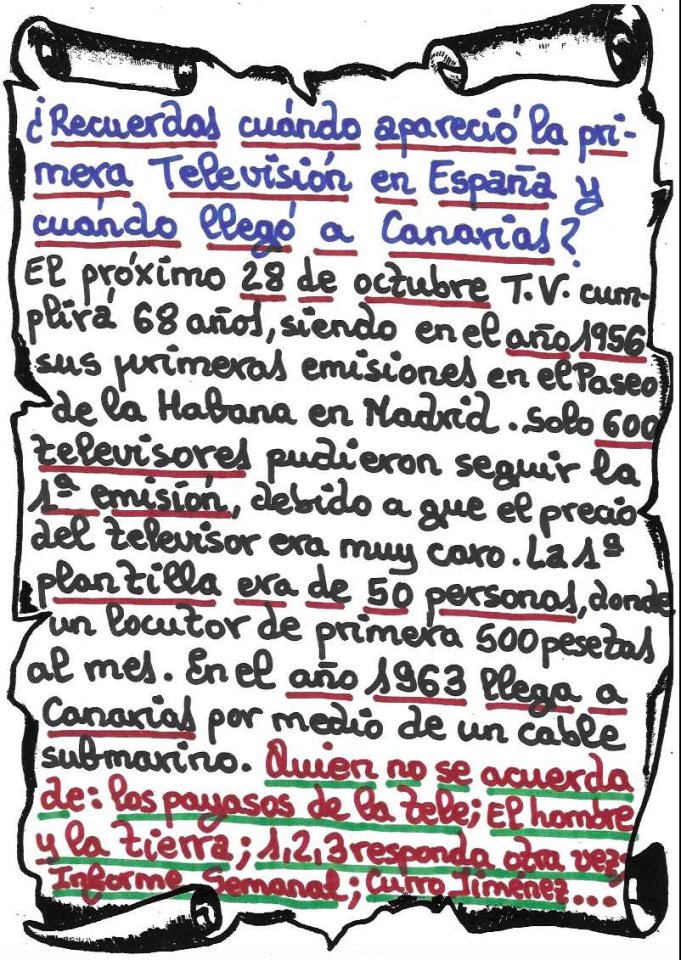 ¿Recuerdas cuándo apareció la pri-
mera Televisión en España y
cuándo llegó a Canarias?
El próximo 28 de octubre T.V. cum-
plirá 68 años, siendo en el año 1956
sus primeras emisiones en el Paseo
de la Habana en Madrid. Solo 600
televisores pudieron seguir la
1ª emisión, debido a que el precio
del televisor era muy caro. La 1ª
plantilla era de 50 personas, donde
un locutor de primera 500 pesetas
al mes. En el año 1963 llega a
Canarias por medio de un cable
submarino. Quien no se acuerda
de: los payasos de la tele; El hombre
y la tierra; 1,2,3 responda otra vez;
Informe Semanal; Curro Jiménez...